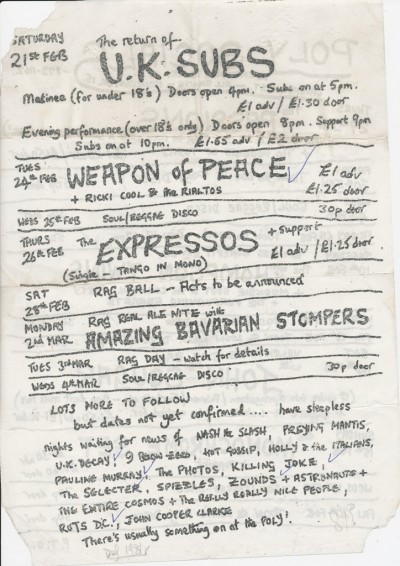 SATURDAY
21ST FEB
The return of
U.K. SUBS
Matinee (for under 18's) Doors open 4pm. Subs on at 5pm.
£1 adv / £1.30 door
Evening performance (over 18's only) Doors open 8pm. Support 9pm
Subs on at 10pm. £1.65 adv / £2 door
TUES
24TH FEB
WEAPON OF PEACE
£1 adv
£1.25 door
+ RICKI COOL & the RIALTOS
WEDS 25TH FEB SOUL/REGGAE DISCO 30p door
THURS
26TH FEB
The EXPRESSOS
+ support
£1 adv / £1.25 door
(Single - TANGO IN MONO)
SAT
28TH FEB
RAG BALL - Acts to be announced
MONDAY
2nd MAR
RAG REAL ALE NITE with
AMAZING BAVARIAN STOMPERS
TUES 3rd MAR RAG DAY - watch for details
WEDS 4th MAR SOUL/REGGAE DISCO 30p door
LOTS MORE TO FOLLOW
but dates not yet confirmed.... have sleepless
nights waiting for news of NASH the SLASH, PREYING MANTIS,
U.K. DECAY, 9 BELOW ZERO, HOT GOSSIP, HOLLY & the ITALIENS,
PAULINE MURRAY, THE PHOTOS, KILLING JOKE,
THE SELECTER, SPIZZLES, ZOUNDS + ASTRONAUTS +
THE ENTIRE COSMOS + THE REALLY REALLY NICE PEOPLE,
RUTS D.C., JOHN COOPER CLARKE
There's usually something on at the POLY!